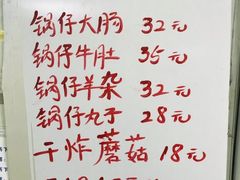 锅仔大肠 32元
锅仔牛肚 35元
锅仔羊杂 32元
锅仔丸子 28元
干炸蘑菇 18元